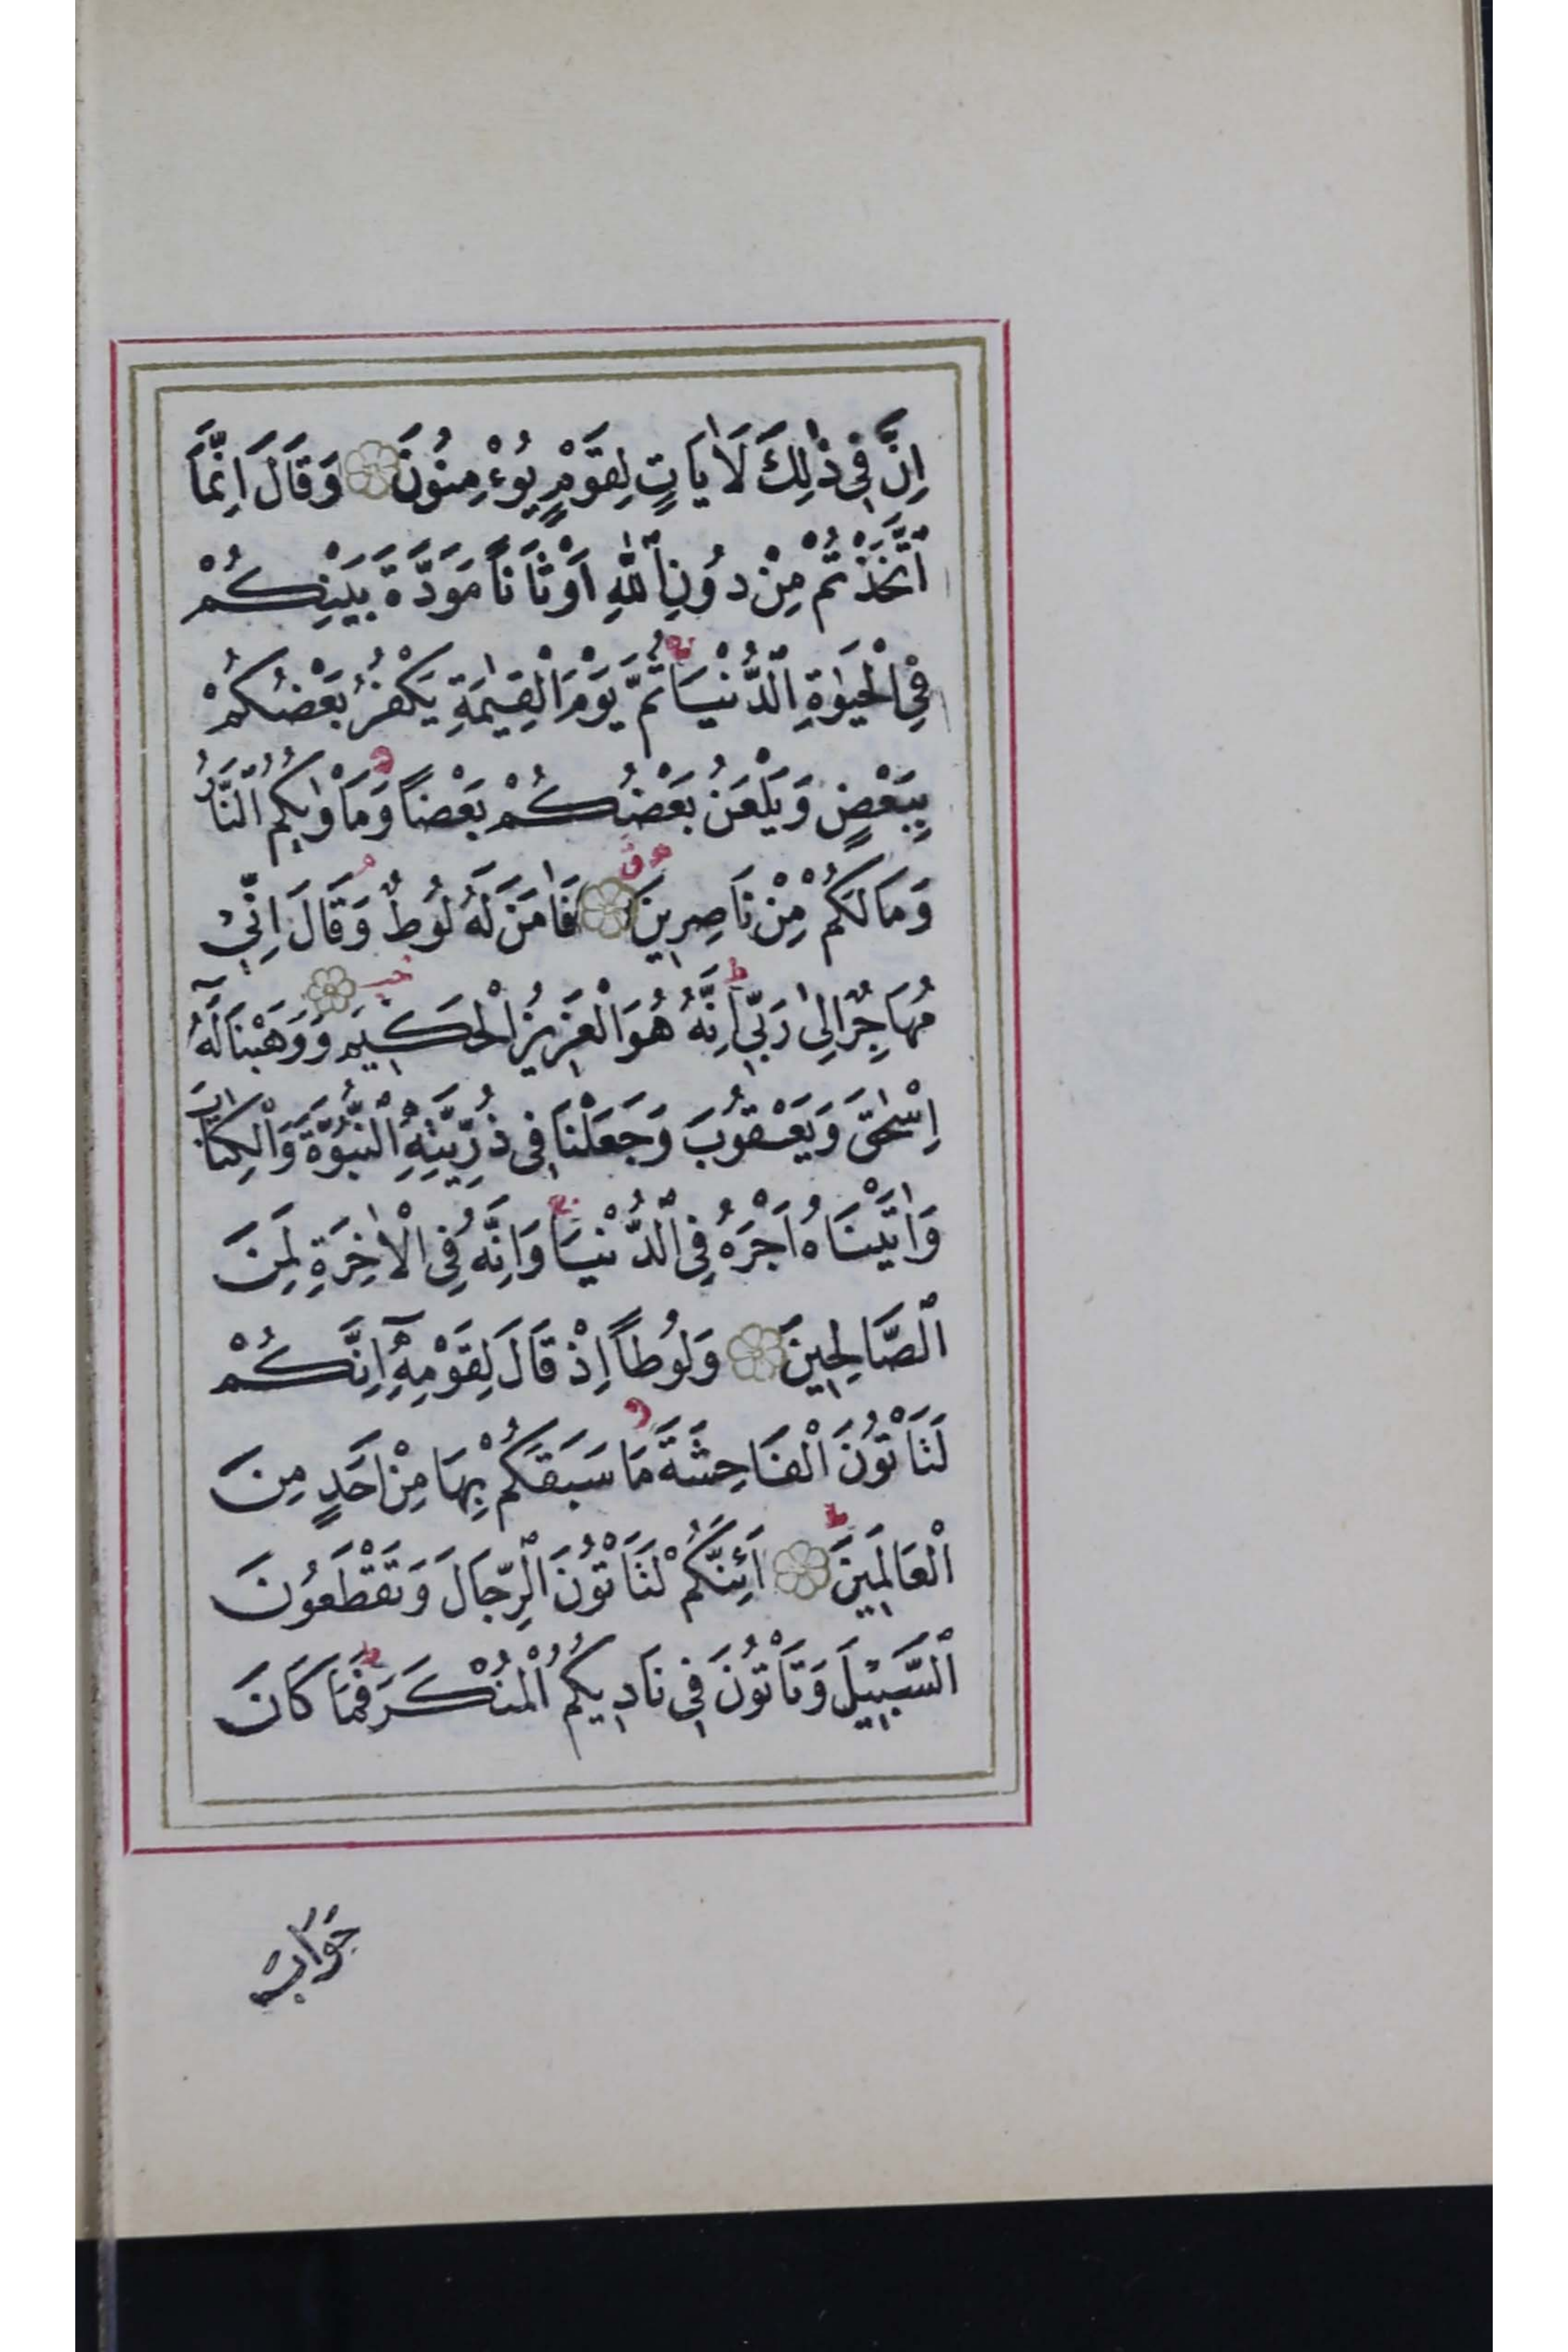 اِنَّ فِى ذٰلِكَ لَاٰيَاتٍ لِقَوْمٍ يُوءْمِنُونَ ۞ وَقَالَ اِنَّمَا
ٱتَّخَذْتُمْ مِنْ دُونِ ٱللّٰهِ اَوْثَانًا مَوَدَّةَ بَيْنِكُمْ
فِى الْحَيٰوةِ ٱلدُّنْيَا ثُمَّ يَوْمَ الْقِيٰمَةِ يَكْفُرُ بَعْضُكُمْ
بِبَعْضٍ وَيَلْعَنُ بَعْضُكُمْ بَعْضًا وَمَاْوٰيكُمُ ٱلنَّارُ
وَمَا لَكُمْ مِنْ نَاصِرِينَ ۞ فَاٰمَنَ لَهُ لُوطٌ وَقَالَ اِنِّى
مُهَاجِرٌ اِلٰى رَبِّى اِنَّهُ هُوَ الْعَزِيزُ الْحَكِيمُ ۞ وَوَهَبْنَا لَهُٓ
اِسْحٰقَ وَيَعْقُوبَ وَجَعَلْنَا فِى ذُرِّيَّتِهِ ٱلنُّبُوَّةَ وَالْكِتَابَ
وَاٰتَيْنَاهُ اَجْرَهُ فِى ٱلدُّنْيَا وَاِنَّهُ فِى الْاٰخِرَةِ لَمِنَ
ٱلصَّالِحِينَ ۞ وَلُوطًا اِذْ قَالَ لِقَوْمِهِٓ اِنَّكُمْ
لَتَاْتُونَ الْفَاحِشَةَ مَا سَبَقَكُمْ بِهَا مِنْ اَحَدٍ مِنَ
الْعَالَمِينَ ۞ اَئِنَّكُمْ لَتَاْتُونَ ٱلرِّجَالَ وَتَقْطَعُونَ
ٱلسَّبِيلَ وَتَاْتُونَ فِى نَادِيكُمُ الْمُنْكَرَ فَمَا كَانَ
جَوَابَ